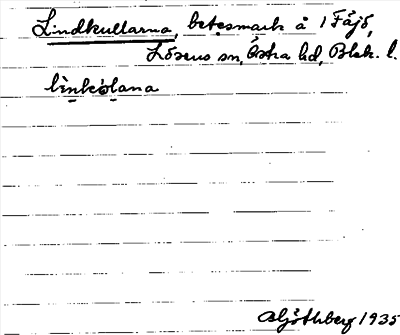 Lindkullarna, betesmark å 1 Fäjö,
Lösens sn, Östra hd, Blek. l.
li̱nkö̱lana
Hjöthberg 1935